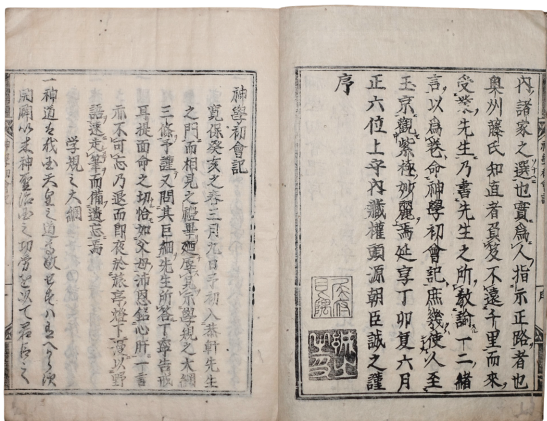 内諸家之選也實爲人指示正路者也
奥州藤氏知直者負笈不遠千里而來
受業先生乃書先生之所教諭一二緒
言以爲老命神學初會記庶幾使人至
玉京觀紫極妙麗焉延享丁卯夏六月
正六位上守内藏權頭源朝臣誠之謹
序
神學初會記
寛保癸亥之春三月九日予初入葵軒先生
之門而相見之禮畢廼辱其示學規之大綱
三條予謹又問其巨細先生所答丁寧告戒
耳提面命之切恰如父母沛恩銘心肝一言
亦不可忘乃退而即夜於旅亭燈下以野
語速走筆而備遺忘焉
學規之大綱
一神道者我國天皇之道
開闢以来神聖治之功労を以て君臣之